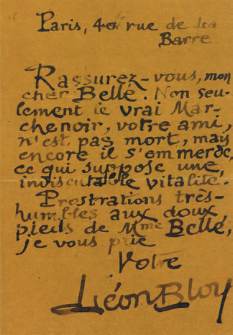 Paris, 40 rue de la
Barre
Rassurez-vous, mon
cher Bellé. Non seu-
lement le vrai Mar-
chenoir, votre ami,
n'est pas mort, mais
encore il s'emmerde,
ce qui suppose une
indiscutable vitalité.
Prostrations très-
humbles aux doux
pieds de Mme Bellé,
je vous prie
Votre
Léon Bloy